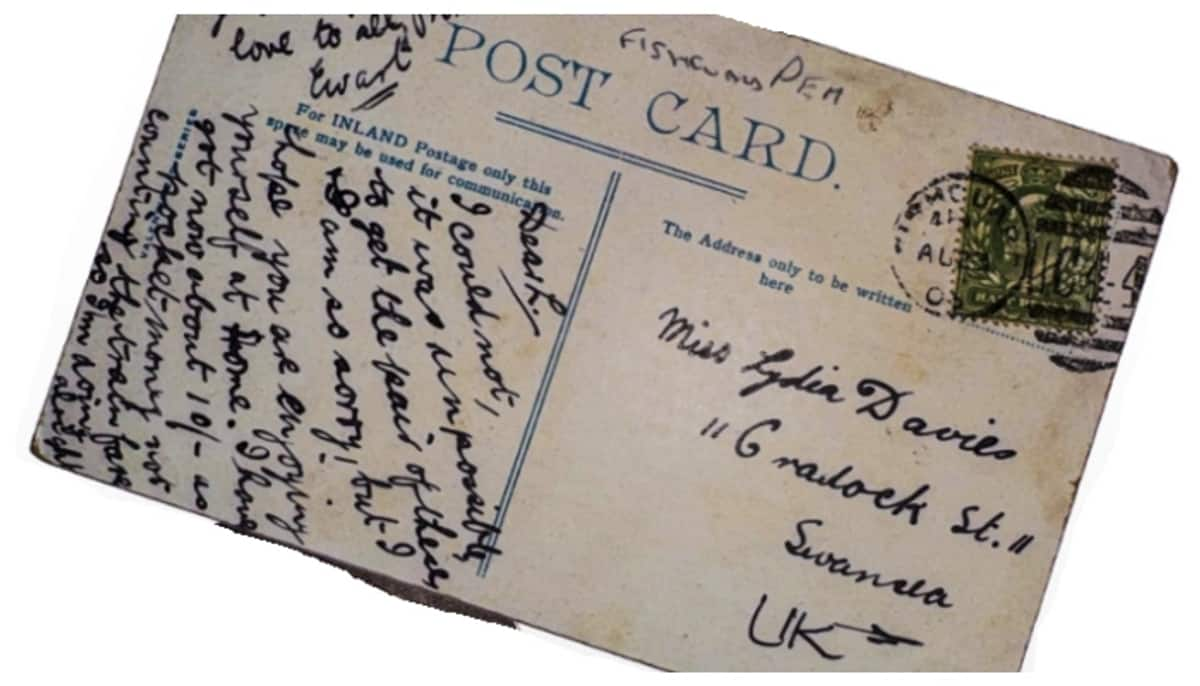 POST CARD.
FISHGUARD PEM
For INLAND Postage only this
space may be used for communication.
The Address only to be written
here
Dear L.
I could not,
it was impossible
to get the pair of these
I am so sorry! but I
hope you are enjoying
yourself at home. I have
got now about 10/- as
pocket-money not
counting the train fare
so I'm doing
alright
love to all from
Ewart
Miss Lydia Davies
"Cradock St."
Swansea
UK
AU